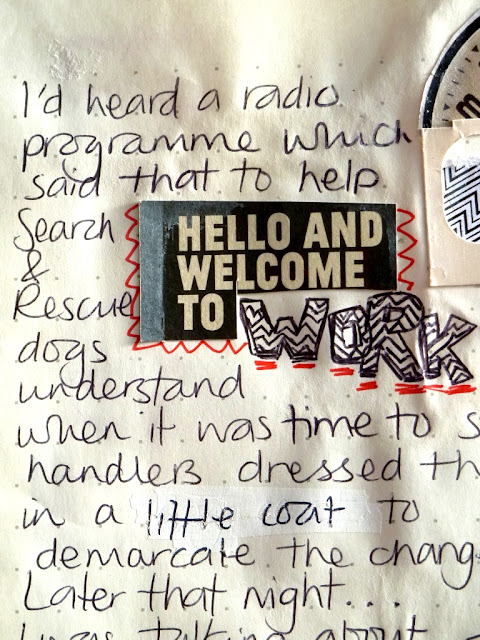 I'd heard a radio
programme which
said that to help
Search
&
Rescue
dogs
understand
HELLO AND
WELCOME
TO
WORK
when it was time to s
handlers dressed th
in a little coat to
demarcate the chang
Later that night....
I was talking about